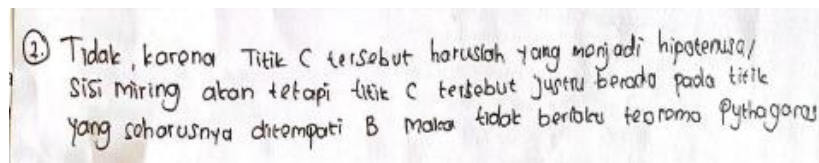 2. Tidak, karena Titik C tersebut haruslah yang menjadi hipotenusa/
Sisi miring akan tetapi titik C tersebut justru berada pada titik
yang seharusnya ditempati B maka tidak berlaku teorema Pythagoras